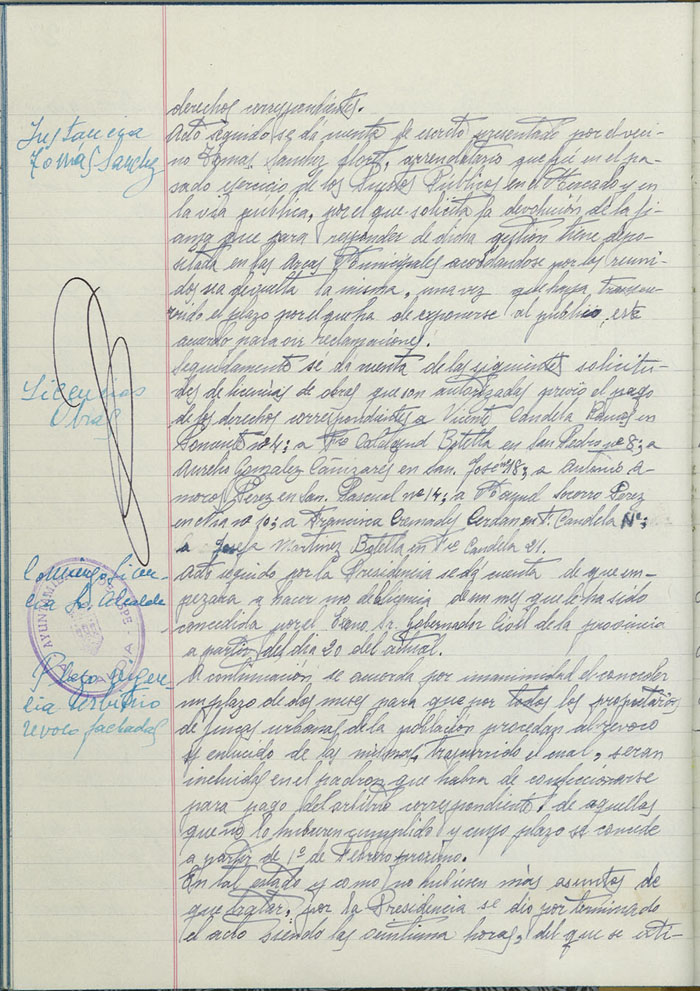 derechos correspondientes.
Instancia
Tomás Sanchez
Acto seguido se da cuenta de escrito presentado por el veci-
no Tomas Sanchez Flores, arrendatario que fué en el pa-
sado ejercicio de los Puestos Públicos en el Mercado y en
la via publica, por el que solicita la devolución de la fi-
anza que para responder de dicha gestión tiene depo-
sitada en las Arcas Municipales acordandose por los reuni-
dos sea devuelta la misma, una vez que haya transcu-
rrido el plazo por el que ha de exponerse al público este
acuerdo para oir reclamaciones.
Licencias
Obras
Seguidamente se da cuenta de las siguientes solicitu-
des de licencias de obras que son autorizadas previo el pago
de los derechos correspondientes a Vicente Candela en
nº 4; a Botella en San Pedro nº 8; a
Aurelio Gonzalez Cañizares en San José nº 18; a Antonio A-
moros Perez en San Pascual nº 14; a Socorro Perez
en nº 10; a Francisca Cremades Cerdan en Candela Nº;
a Josefa Martinez Botella en Candela 21.
Comienzo licen-
cia Sr. Alcalde
AYUNTAMIENTO
Acto seguido por la Presidencia se dá cuenta de que em-
pezara a hacer uso de licencia de un mes que le ha sido
concedida por el Excmo Sr. Gobernador Civil de la provincia
a partir del dia 20 del actual.
Plazo exigen-
cia arbitrio
revoco fachadas
A continuación, se acuerda por unanimidad el conceder
un plazo de dos meses para que por todos los propietarios
de fincas urbanas de la población procedan al revoco
y enlucido de las mismas, trascurrido el cual, seran
incluidas en el padron que habra de confeccionarse
para pago del arbitrio correspondiente de aquellas
que no lo hubieren cumplido y cuyo plazo se concede
a partir de 1º de Febrero proximo.
En tal estado y como no hubiesen más asuntos de
que tratar, por la Presidencia se dio por terminado
el acto siendo las horas, del que se exti-